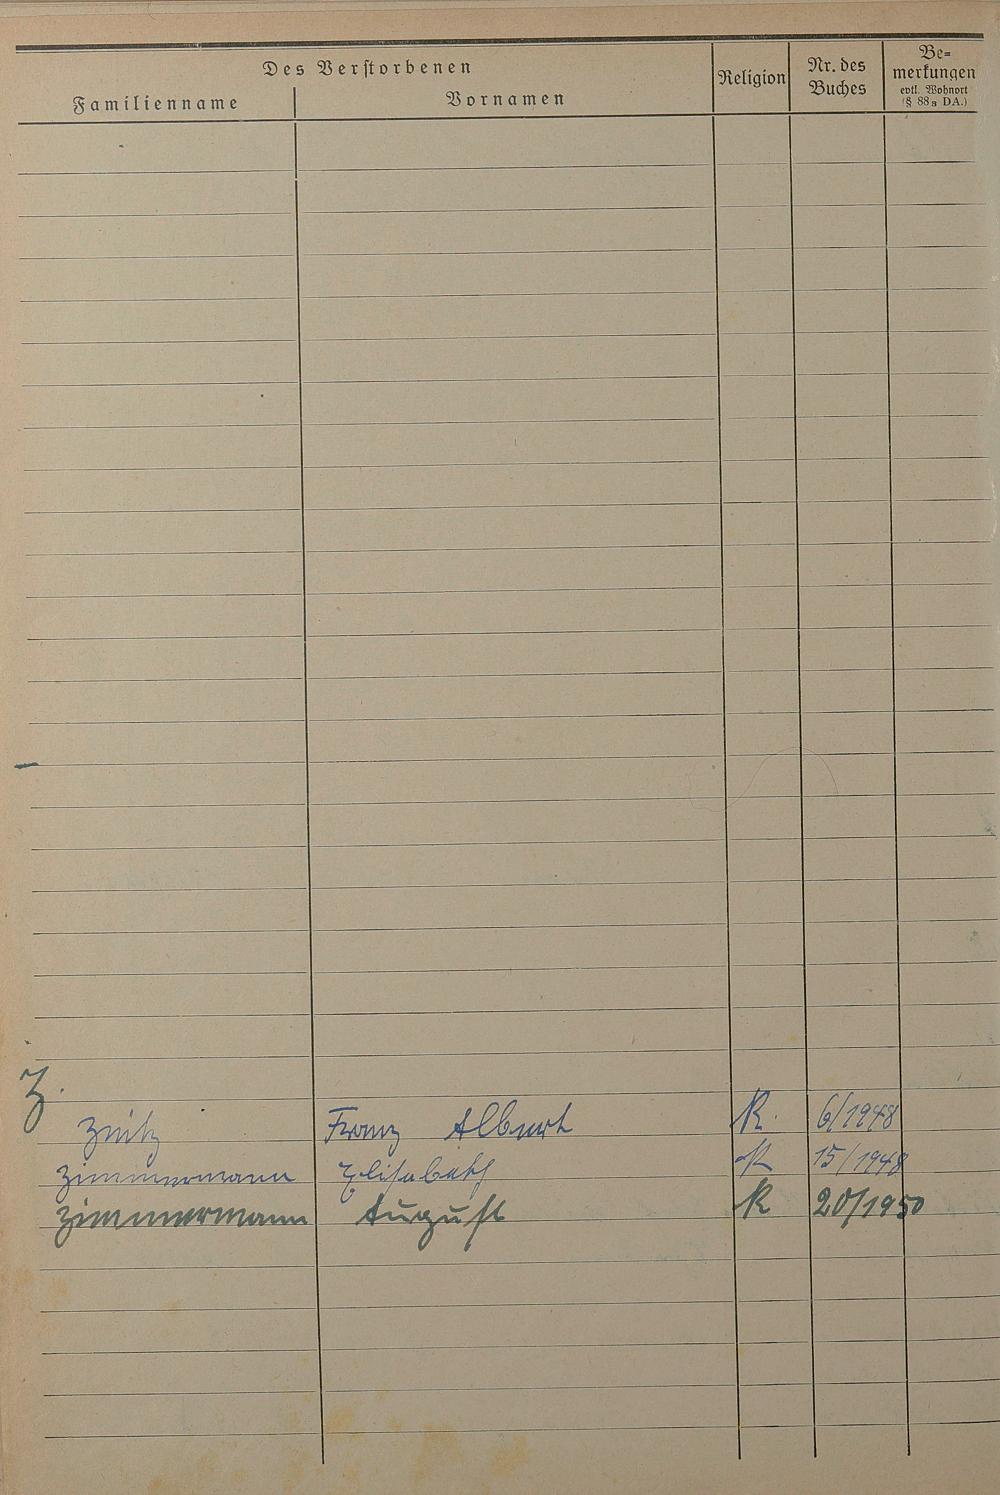 Des Verstorbenen
Familienname
Vornamen
Religion
Nr. des
Buches
Be=
merkungen
evtl. Wohnort
(§ 88 3 DA.)
Z.
Franz Albert K. 6/1948
Zimmermann Elisabeth K 15/1948
Zimmermann August K 20/1950